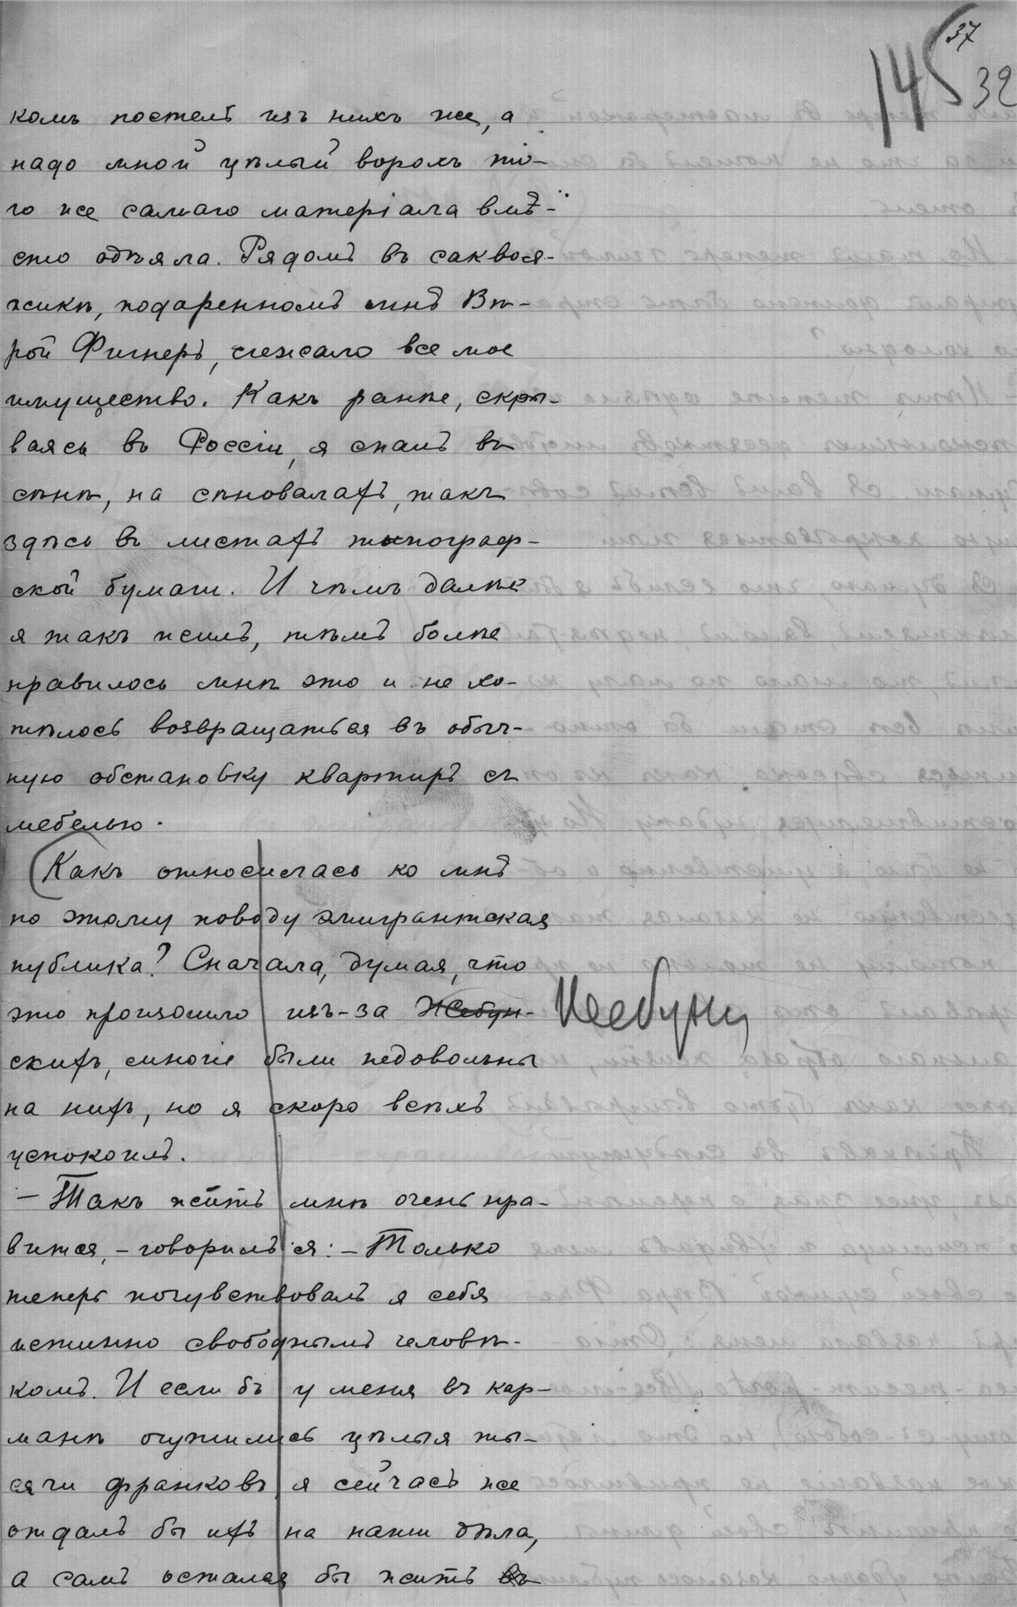 37
145
32
комъ постель изъ нихъ же, а
надо мной цѣлый ворохъ то-
го же самаго матеріала вмѣ-
сто одѣяла. Рядомъ въ саквоя-
жикѣ, подаренномъ мнѣ Вѣ-
рой Фигнеръ, лежало все мое
имущество. Какъ ранѣе, скры-
ваясь въ Россіи, я спалъ въ
сѣнѣ, на сѣновалахъ, такъ
здѣсь въ листахъ типограф-
ской бумаги. И чѣмъ далѣе
я такъ жилъ, тѣмъ болѣе
нравилось мнѣ это и не хо-
тѣлось возвращаться въ обыч-
ную обстановку квартиръ съ
мебелью.
Какъ относилась ко мнѣ
по этому поводу эмигрантская
публика? Сначала, думая, что
это произошло изъ-за Жебун-
скихъ, многіе были недовольны
на нихъ, но я скоро всѣхъ
успокоилъ.
— Такъ жить мнѣ очень нра-
вится, – говорилъ я: – Только
теперь почувствовалъ я себя
истинно свободнымъ человѣ-
комъ. И если бъ у меня въ кар-
манѣ очутились цѣлыя ты-
сячи франковъ, я сейчасъ же
отдалъ бы ихъ на наши дѣла,
а самъ остался бы жить въ